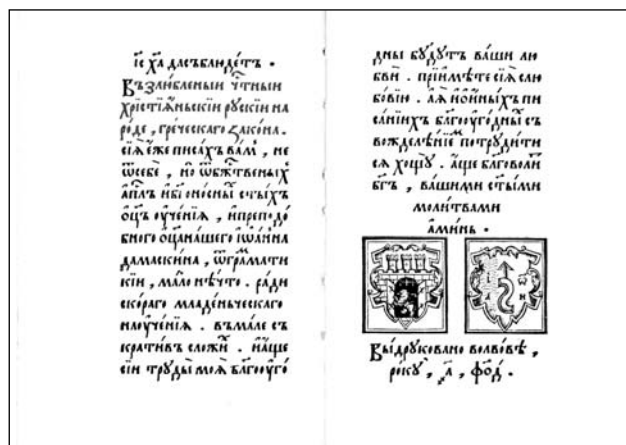 і҃с х҃а да съблюдетъ .
Възлюбленыи ч҃тныи
хр҃истїа́ньскїи ру́скїи на
ро́де , гре́ческаго зако́на .
сїѧ̀ е́же писа́хъ ва́мъ , не
ѿ себѐ , но̀ ѿ бж҃твеныхъ
ап҃лъ и бг҃оно́сныхъ ст҃ы́хъ
ѻц҃ъ оуче́нїѧ , и преподо́
бного ѻц҃а на́шего іѡа́нна
дамаски́на , ѿ гра́мати
кїи , ма́ло нѣ́что . ра́ди
ско́раго младе́ньческаго
наоуче́нїѧ . въ ма́ле съ
крати́въ сложи́хъ . и а́ще
сїи труды̀ моѧ̀ бл҃гооуго́
дны бу́дутъ ва́ши лю
бви̂ . прїиймѣ́те сїѧ̀ с лю
бо́вїю . а ѧ и о и́ныхъ пи
са́нїихъ бл҃гооуго́дныхъ с въ
жделѣ́нїемъ потруди́ти
сѧ хощу̀ . а́ще бл҃говоли́тъ
бг҃ъ , ва́шими ст҃ы́ми
моли́твами
ами́нь .
Вы́друковано во льво́вѣ ,
ро́ку , ҂а҃ , ф҃о҃д .